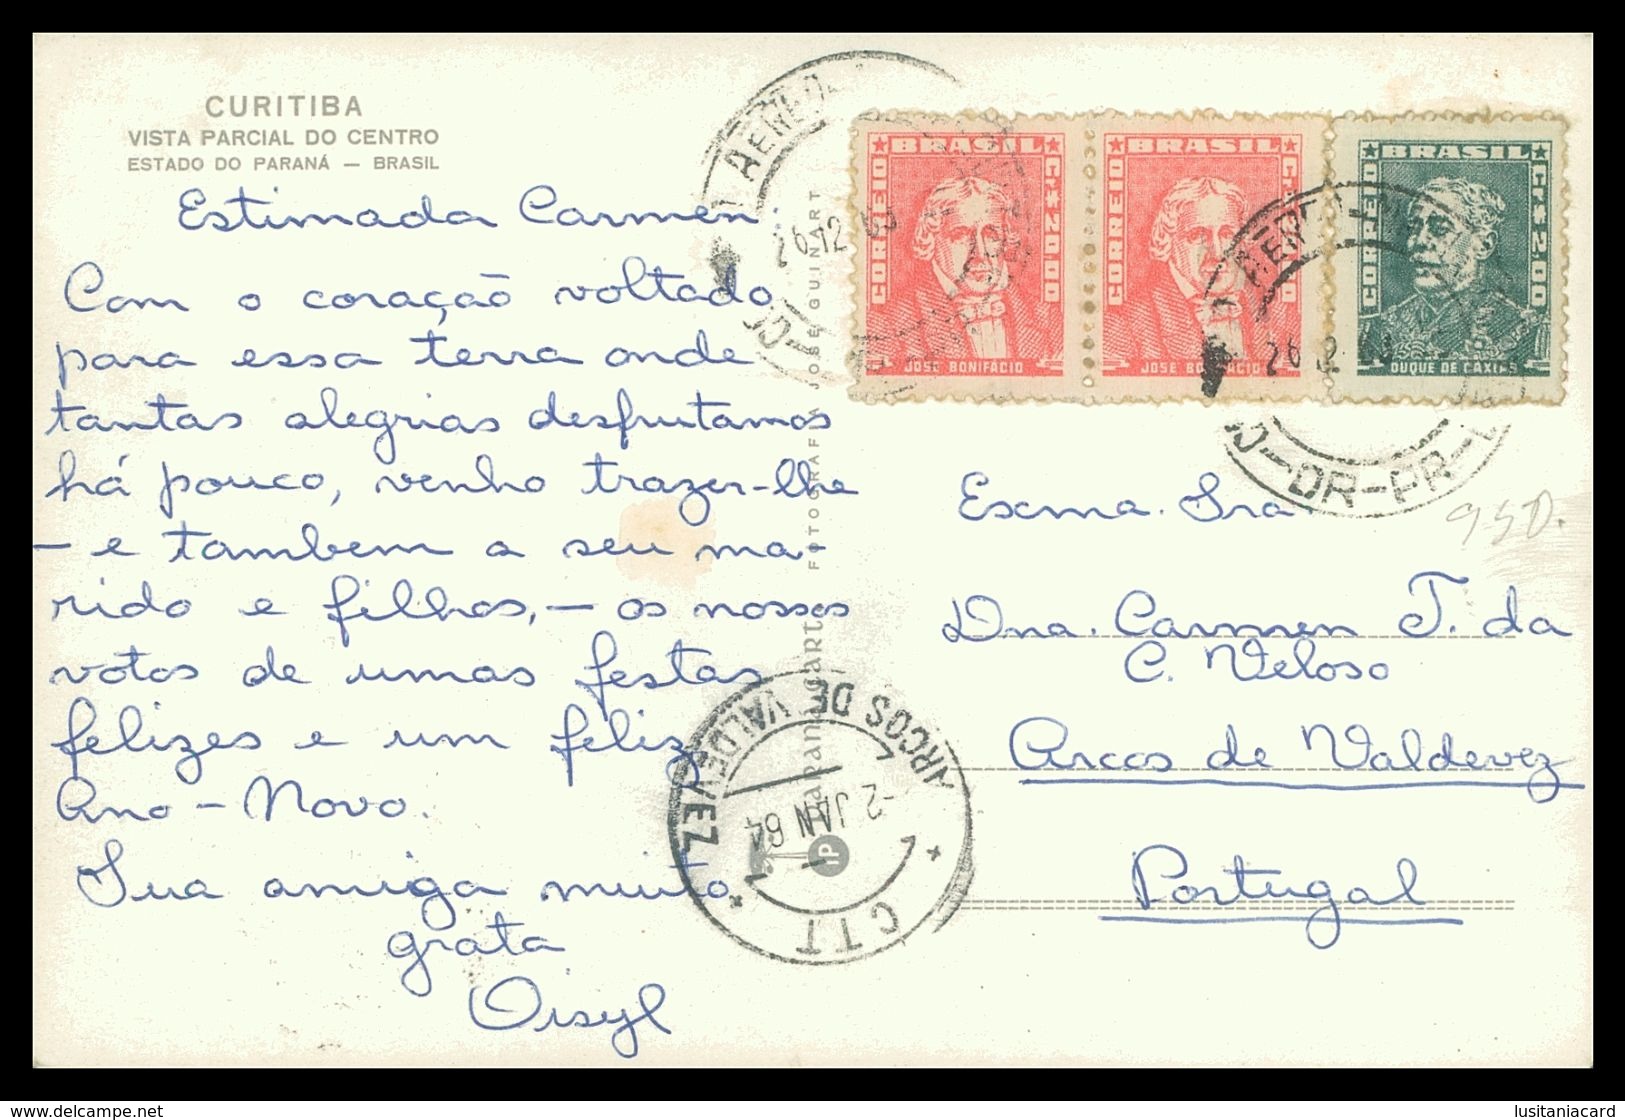 CURITIBA
VISTA PARCIAL DO CENTRO
ESTADO DO PARANÁ — BRASIL
Estimada Carmen:
Com o coração voltado
para essa terra onde
tantas alegrias desfrutamos
há pouco, venho trazer-lhe
- e tambem a seu ma-
rido e filhos, - os nossos
votos de umas festas
felizes e um feliz
Ano-Novo.
Sua amiga muito
grata
Oisyl
FOTOGRAFIA JOSÉ GUINART
BRASIL
CORREIO
CR$ 20,00
JOSÉ BONIFACIO
BRASIL
CORREIO
JOSÉ BONIFACIO
BRASIL
CORREIO
CR$ 2,00
DUQUE DE CAXIAS
26 12 63
DR-PR
Exma. Sra.
950.
Dna. Carmen T. da
C. Veloso
Arcos de Valdevez
Portugal
ARCOS DE VALDEVEZ
-2 JAN 64
CTT
delcampe.net
lusitaniacard